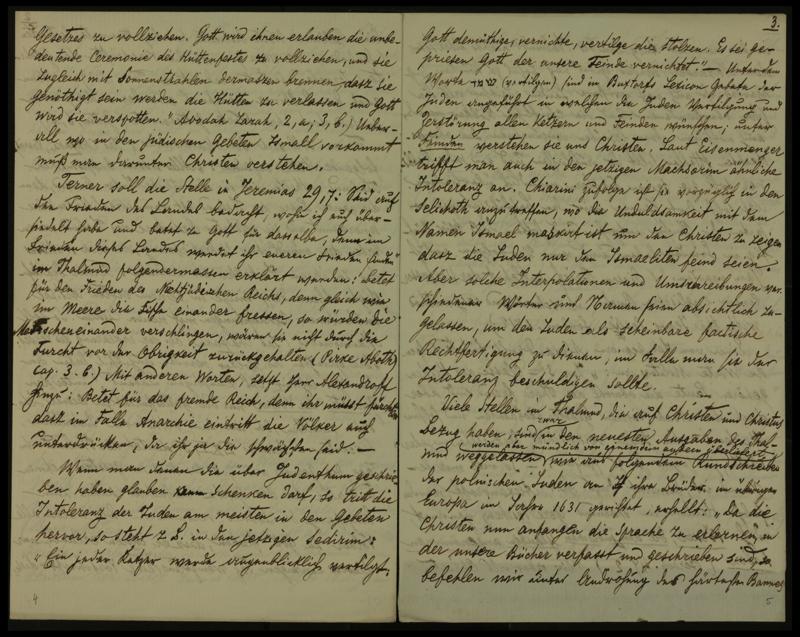 Gesetzes zu vollziehen. Gott wird ihnen erlauben die unbe-
deutende Ceremonie des Hüttenfestes zu vollziehen, und sie
zugleich mit Sonnenstrahlen dermaszen brennen, dasz sie
genöthigt sein werden die Hütten zu verlassen und Gott
wird sie verspotten. (Avodah Zarah, 2, a; 3, b.) Ueber-
all wo in den jüdischen Gebeten Ismall vorkommt
muß man darunter Christen verstehen.
Ferner soll die Stelle in Jeremias 29,7: Seid auf
den Frieden des Landes bedacht, wohin ich euch über-
siedelt habe und betet zu Gott für dasselbe, denn im
Frieden dieses Landes werdet ihr eueren Frieden finden"
im Thalmud folgendermassen erklärt werden: betet
für den Frieden des Nichtjüdischen Reichs, denn gleich wie
im Meere die Fische einander fressen, so würden die
Menschen einander verschlingen, wären sie nicht durch die
Furcht vor der Obrigkeit zurückgehalten (Pirke Aboth,
cap. 3. b.) Mit anderen Worten, setzt Herr Alexandroff
hinzu: Betet für das fremde Reich, denn ihr müsst fürchten
dasz im Falle Anarchie eintritt die Völker euch
unterdrücken, da ihr ja die schwächsten seid. —
Wenn man denen die über Judenthum geschrie-
ben haben glauben schenken darf, so tritt die
Intoleranz der Juden am meisten in den Gebeten
hervor, so steht z. B. in den jetzigen Sedirim:
"Ein jeder Ketzer werde augenblicklich vertilgt,
4
3.
Gott demüthige, vernichte, vertilge die Stolzen. Es sei ge-
priesen Gott der unsere Feinde vernichtet" — Unter dem
Worte (vertilgen) sind in Buxtorfs Lexicon Gebete der
Juden angeführt in welchen die Juden Vertilgung und
Zerstörung allen Ketzern und Feinden wünschen; unter
Feinden verstehen sie uns Christen. Laut Eisenmenger
trifft man auch in den jetzigen Machsorim ähnliche
Intoleranz an. Chiarini zufolge ist sie vorzüglich in den
Selichoth anzutreffen, wo die Unduldsamkeit mit dem
Namen Ismael maskirt ist um den Christen zu zeigen
dasz die Juden nur den Ismaeliten feind seien.
Aber solche Interpolationen und Umschreibungen ver-
schiedener Wörter und Normen seien absichtlich zu-
gelassen, um den Juden als scheinbare factische
Rechtfertigung zu dienen, im Falle man sie der
Intoleranz beschuldigen sollte.
Viele Stellen im Thalmud, die auf Christen und Christus
Bezug haben, sind zwar in den neuesten Ausgaben des Thal-
mud weggelassen, werden aber mündlich von Generation überliefert
wie aus folgendem Rundschreiben
der polnischen Juden an ihre Brüder im übrigen
Europa im Jahre 1631 gerichtet, erhellt: "Da die
Christen nun anfangen die Sprache zu erlernen, in
der unsere Bücher verfasst und geschrieben sind, so
befehlen wir unter Androhung des härtesten Bannes
5